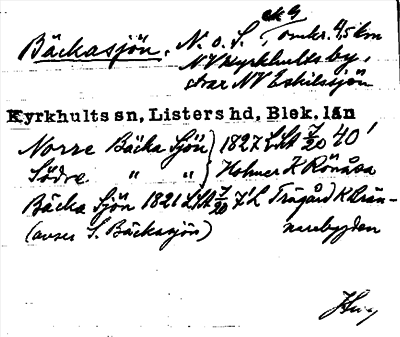 Bäckasjön, N. o. S., ek 4, omkr. 4,5 km
NV Kyrkhults by,
strax NV Eskilssjön
Kyrkhults sn, Listers hd, Blek. län
Norre Bäcka Sjön } 1827 LSA 7/20 40'
Södre " " } Holmer K Rönåsa
Bäcka Sjön 1821 LSA 7/20 7 L Trägård K Krän-
(avser S. Bäckasjön) narebygden